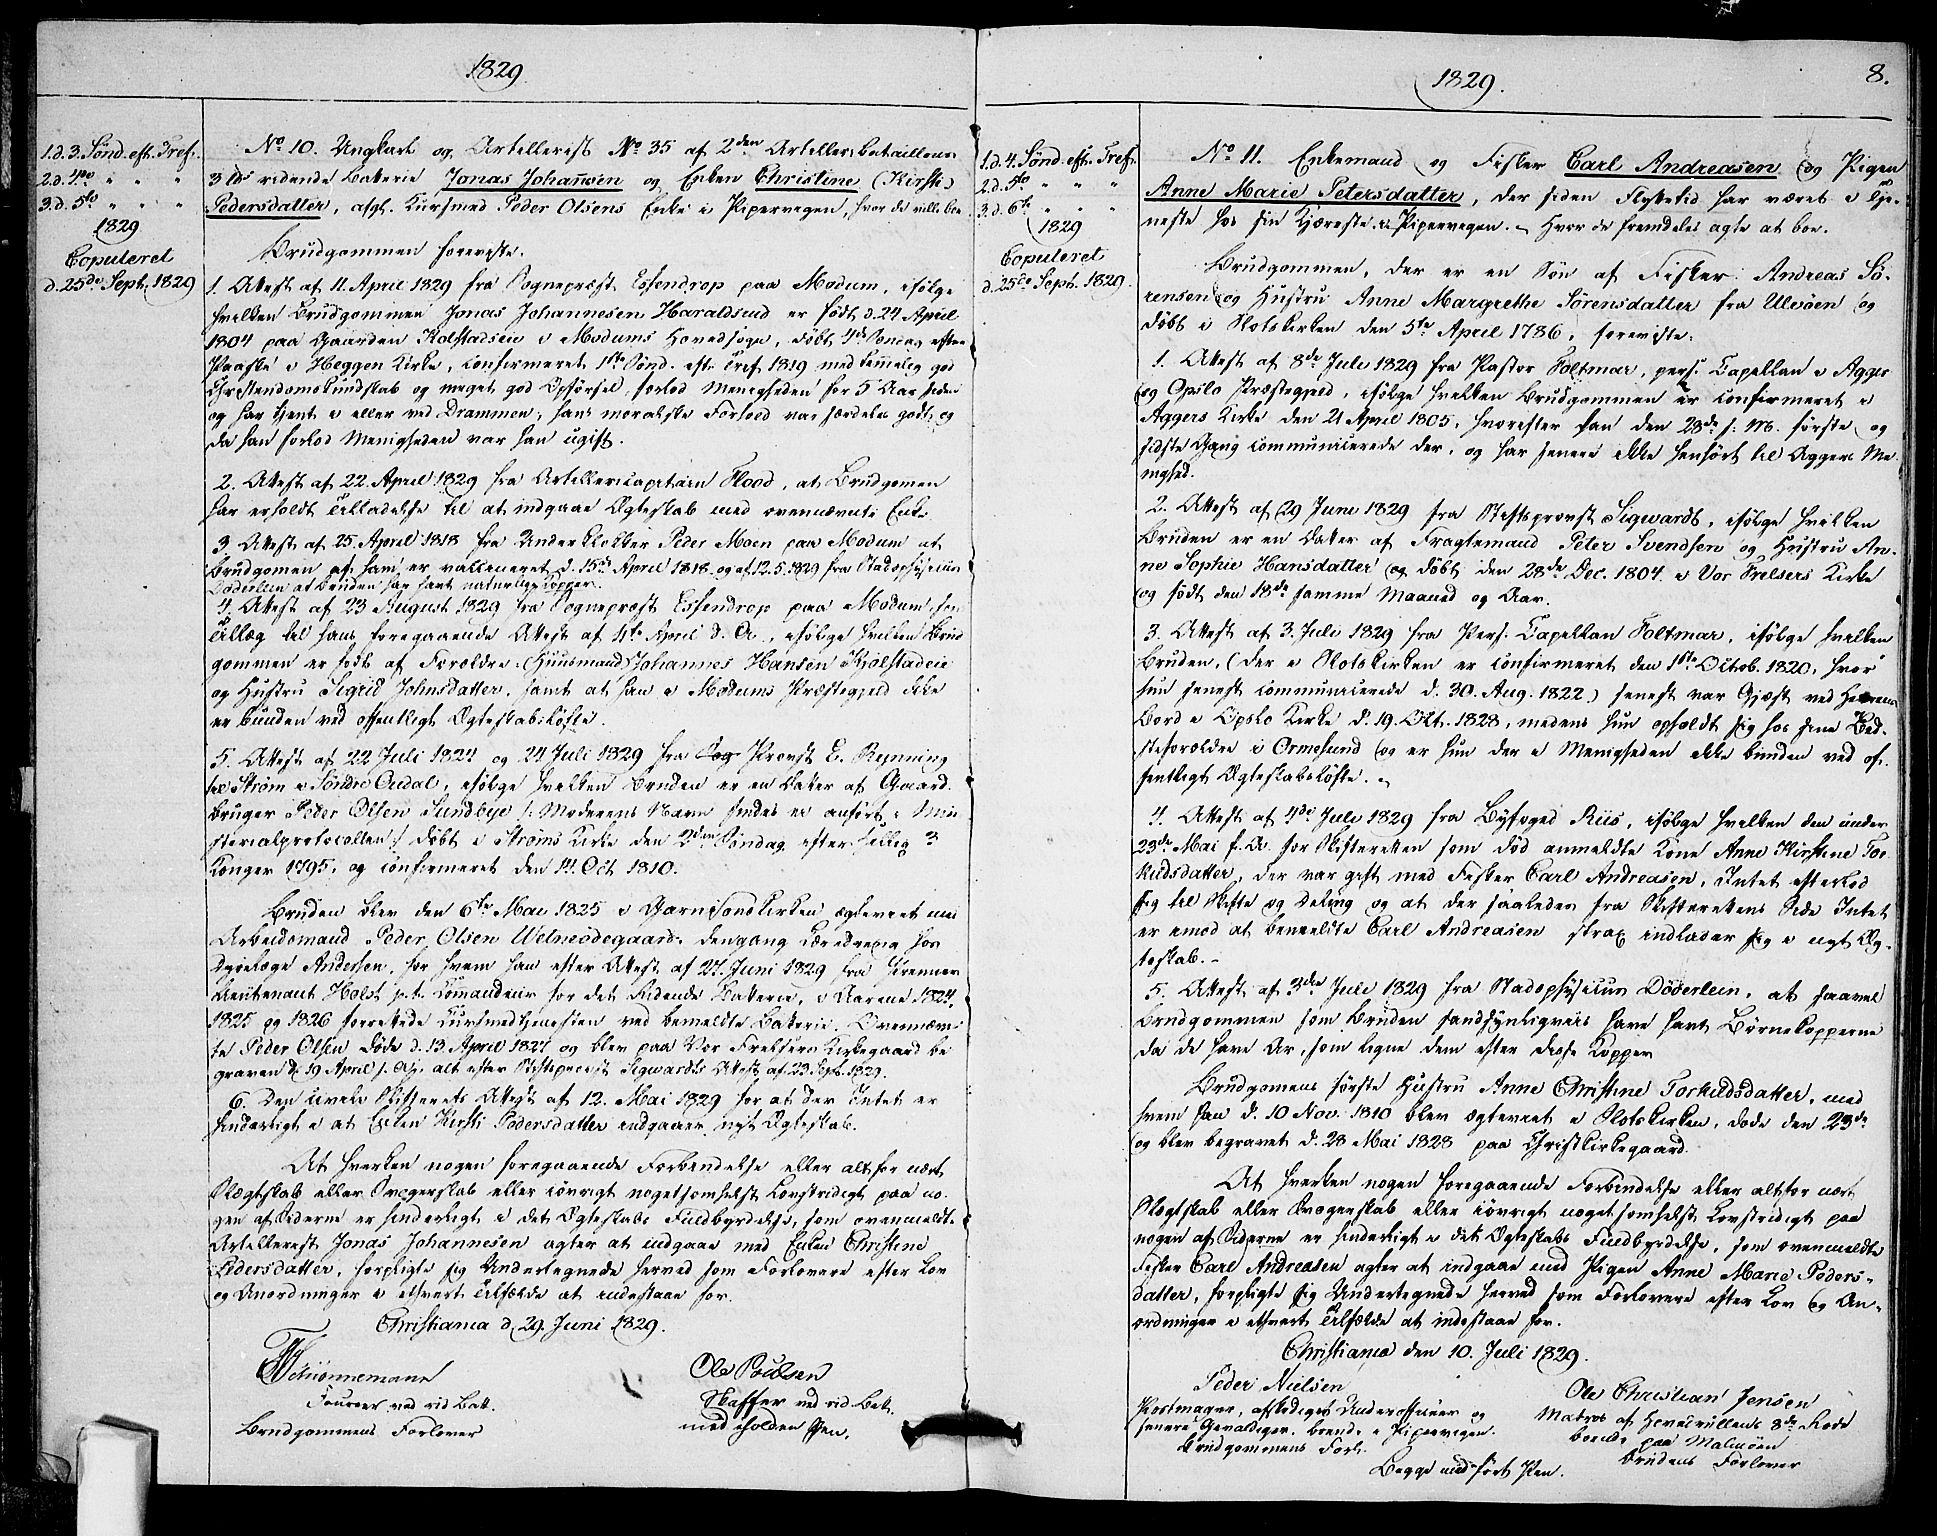 1829
1.d. 3. Sönd. eft. Tref.
2.d. 4to " " "
3.d. 5to " " "
1829
Copuleret
d. 25de Sept. 1829
No 10. Ungkarl og Artellerist No 35 af 2den Artelleribataillons
3die ridende Batterie Jonas Johannsen og Enken Christine (Kirsti)
Pedersdatter, afgl. Kursmed Peder Olsens Enke i Pipervigen, hvor de ville boe.
Brudgommen foreviste.
1. Attest af 11. April 1829 fra Sognepræst Essendrop paa Modum, ifölge
hvilken Brudgommen Jonas Johannesen Haraldsrud er födt d. 24 April
1804 paa Gaarden Kolstadeie i Modums Hovedsogn, döbt 4de Söndag efter
Paaske i Heggen Kirke, confirmeret 1ste Sönd. eft. Tref 1819 med temmelig god
Christendomskundskab og meget god Opförsel, forlod Menigheden for 5 Aar siden
og har tjent i eller ved Drammen; hans moralske Forhold var særdeles godt, og
da han forlod Menigheden var han ugift.
2. Attest af 22. April 1829 fra Artellericapitain Flood, at Brudgomen
har erholdt Tilladelse til at indgaae Ægteskab med ovennævnte Enke
3. Attest af 25. April 1818 fra Underklokker Peder Moen paa Modum at
Brudgomen af ham er vaccineret d. 15de April 1818. og af 12.5.1829 fra Stadsphysicus
Döderlein at Bruden har havt naturlige Kopper.
4. Attest af 23 August 1829 fra Sognepræst Essendrop paa Modum som
Tillæg til hans foregaaende Attest af 11te April d. A., ifölge hvilken Brud
gommen er födt af Forældre (Huusmand) Johannes Hansen Kjolstadeie
og Hustru Sigrid Johnsdatter, samt at han i Modums Præstegjeld ikke
er bunden ved offentligt Ægteskabslöfte.
5. Attest af 22 Juli 1824 og 24 Juli 1829 fra Sog Provst E. Rynning
til Ström i Söndre Oudal, ifölge hvilken Bruden er en Datter af Gaard
bruger Peder Olsen Sundbye /: Moderens Navn findes ei anfört i Mini
sterialprotocollen :/ döbt i Ströms Kirke den 2den Söndag efter hellig 3
Konger 1795, og confirmeret den 14 Oct 1810.
Bruden blev den 6te Mai 1825 i Garnisonskirken ægteviet med
Arbeidsmand Peder Olsen Welmodegaard, dengang Læredreng hos
Dyrlæge Andersen, for hvem han efter Attest af 27. Juni 1829 fra Premier
Lieutenant Holst p.t. Commandeur for det Ridende Batterie, i Aarene 1824
1825 og 1826 forrettede Cursmedtjenesten ved bemeldte Batterie. Ovennævn
te Peder Olsen döde d. 13. April 1827 og blev paa Vor Frelsers Kirkegaard be
graven d. 19 April s. A., alt efter Stiftsprovst Sigwardts Attest af 23. Sept. 1829.
6. Den civile Skifterets Attest af 12. Mai 1829 for at der Intet er
hinderligt i at Enken Kirsti Pedersdatter indgaaer nyt Ægteskab.
At hverken nogen foregaaende Forbindelse eller altfor nært
Slægtskab eller Svogerskab eller iövrigt nogetsomhelst Lovstridigt paa no-
gen af Siderne er hinderligt i det Ægteskabs Fuldbyrdelse, som ovenmeldte
Artellerist Jonas Johannesen agter at indgaae med Enken Christine
Pedersdatter, forpligte sig Undertegnede herved som Forlovere efter Lov
og Anordninger i ethvert Tilfælde at indestaae for.
Christiania d. 29. Juni 1829.
Schönnemann
Foureer ved rid Batt.
Brudgommens Forlover
Ole Poulsen
Skaffer ved rid Bat.
med iholden Pen.
1829.
8.
1.d. 4. Sönd. eft. Tref.
2.d. 5to " " "
3.d. 6te " " "
1829
Copuleret
d. 25de Sept. 1829.
No 11. Enkemand og Fisker Carl Andreasen og Pigen
Anne Marie Petersdatter, der siden Flyttetid har været i Tje-
neste hos sin Kjæreste i Pipervigen. Hvor de fremdeles agte at boe.
Brudgommen, der er en Sön af Fisker Andreas Sö-
rensen og Hustru Anne Margrethe Sörensdatter fra Ulvöen og
döbt i Slotskirken den 5te April 1786, foreviste:
1. Attest af 8de Juli 1829 fra Pastor Foltmar, pers. Capellan i Agger
og Opslo Præstegjeld, ifölge hvilken Brudgommen er confirmeret i
Aggers Kirke den 21 April 1805, hvorefter han den 28de s. M. förste og
sidste Gang communicerede der, og har senere ikke henhört til Aggers Me
nighed.
2. Attest af 29 Juni 1829 fra Stiftsprovst Sigwardt, ifölge hvilken
Bruden er en Datter af Fragtemand Peter Svendsen og Hustru An-
ne Sophie Hansdatter og döbt den 28de Dec. 1804 i Vor Frelsers Kirke
og födt den 18de samme Maaned og Aar.
3. Attest af 3. Juli 1829 fra Pers. Capellan Foltmar, ifölge hvilken
Bruden, (der i Slotskirken er confirmeret den 1ste Octob. 1820, hvor
hun senest communicerede d. 30. Aug. 1822) senest var Gjæst ved Herrens
Bord i Opslo Kirke d. 19. Okt. 1828, medens hun opholdt sig hos sine Bed-
steforældre i Ormsund og er hun der i Menigheden ikke bunden ved of-
fentligt Ægteskabslöfte.
4. Attest af 4de Juli 1829 fra Byfoged Riis, ifölge hvilken den under
23de Mai f. A. for Skifteretten som död anmeldte Kone Anne Kirstine Tor
kildsdatter, der var gift med Fisker Carl Andreasen, Intet efterlod
sig til Skifte og Deling og at der saaledes fra Skifterettens Side Intet
er imod at bemeldte Carl Andreasen strax indlader sig i nyt Æg-
teskab.
5. Attest af 3die Juli 1829 fra Stadsphysicus Döderlein, at saavel
Brudgommen som Bruden sandsynligviis have havt Börnekopperne
da de have Ar, som ligne dem efter disse Kopper
Brudgomens förste Hustru Anne Christine Torkildsdatter, med
hvem han d. 10 Nov. 1810 blev ægteviet i Slotskirken, döde den 23de
og blev begravet d. 28 Mai 1828 paa Christkirkegaard.
At hverken nogen foregaaende Forbindelse eller altfor nært
Slægtskab eller Svogerskab eller iövrigt nogetsomhelst Lovstridigt paa
nogen af Siderne er hinderligt i det Ægteskabs Fuldbyrdelse, som ovenmeldte
Fisker Carl Andreasen agter at indgaae med Pigen Anne Marie Peders-
datter, forpligte sig Undertegnede herved som Forlovere efter Lov og An-
ordninger i ethvert Tilfælde at indestaae for.
Christiania den 10. Juli 1829.
Peder Nielsen
afskediget Underofficeer og
senere Gevaldiger, boende i Pipervigen.
Brudgommens Forl.
Ole Christian Jensen
Matros af Hovedrullens 8de Rode
boende paa Malmöen
Brudens Forlover
Begge med fört Pen.